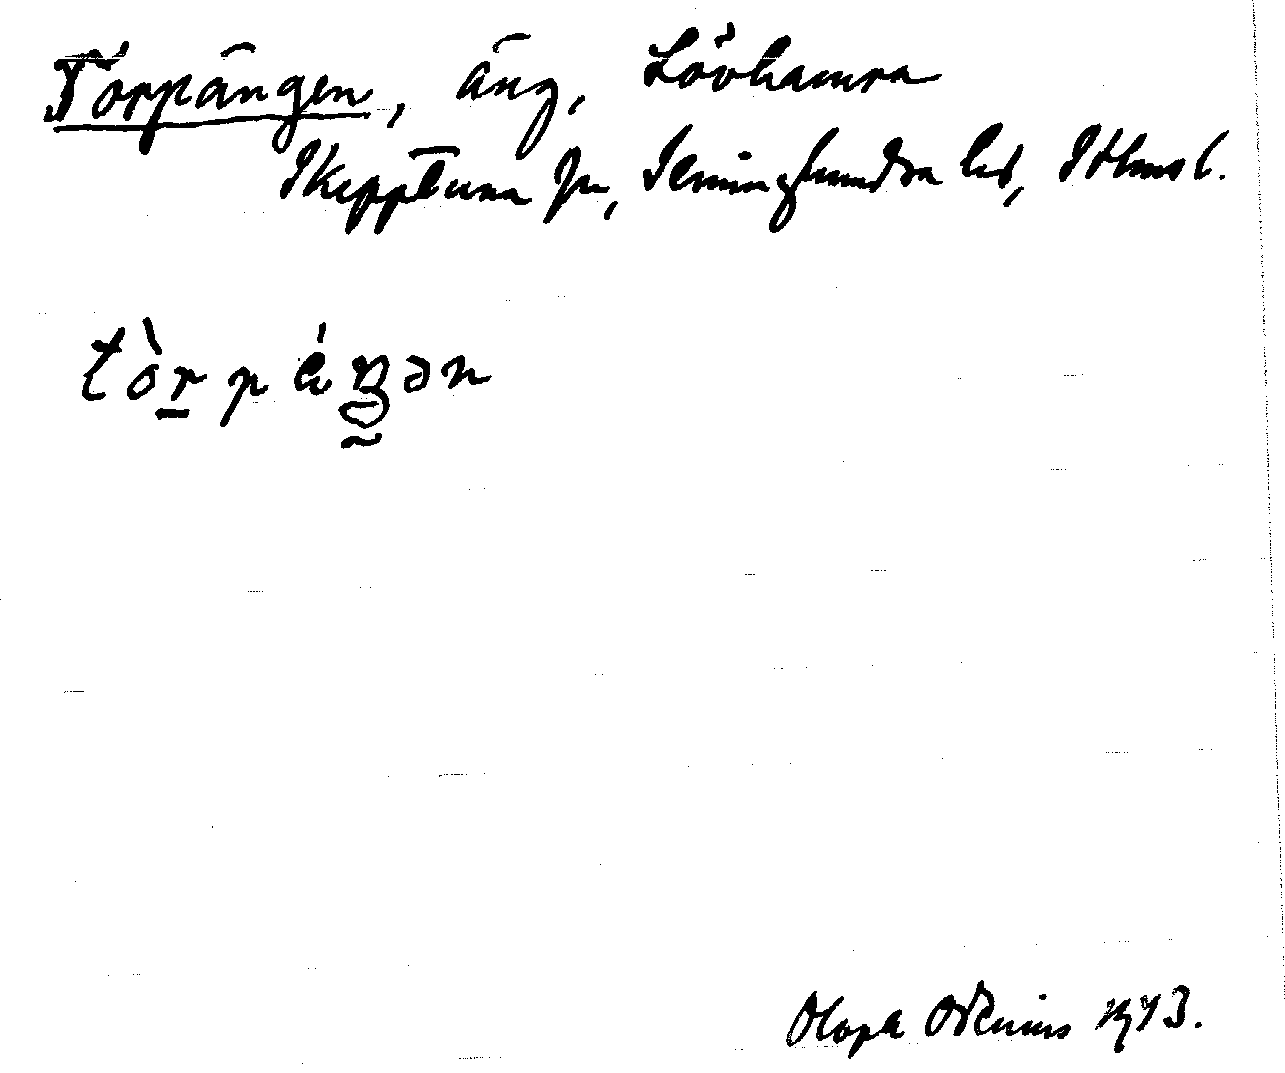 Torpängen, äng, Lövhamra
Skepptuna sn, Seminghundra hd, Sthms l.
tòrpä́ŋən
Olof Odenius 1973.